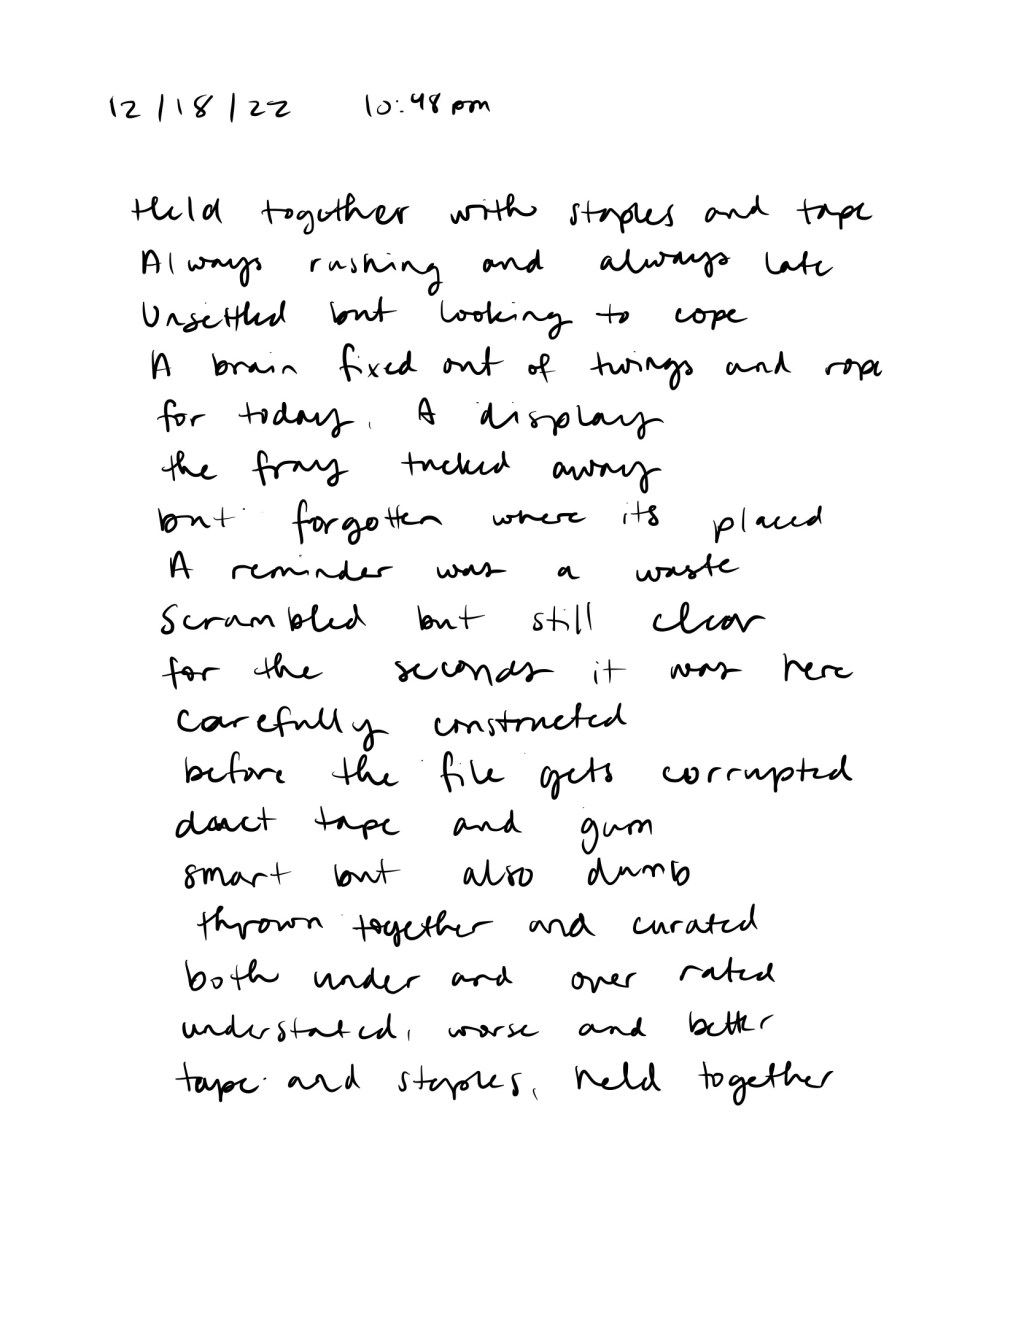 12/18/22 10:48 pm
Held together with staples and tape
Always rushing and always late
Unsettled but looking to cope
A brain fixed out of twings and rope
for today. A display
the fray tucked away
but forgotten where its placed
A reminder was a waste
Scrambled but still clear
for the seconds it was here
carefully constructed
before the file gets corrupted
duct tape and gum
smart but also dumb
thrown together and curated
both under and over rated
understated, worse and better
tape and staples, held together